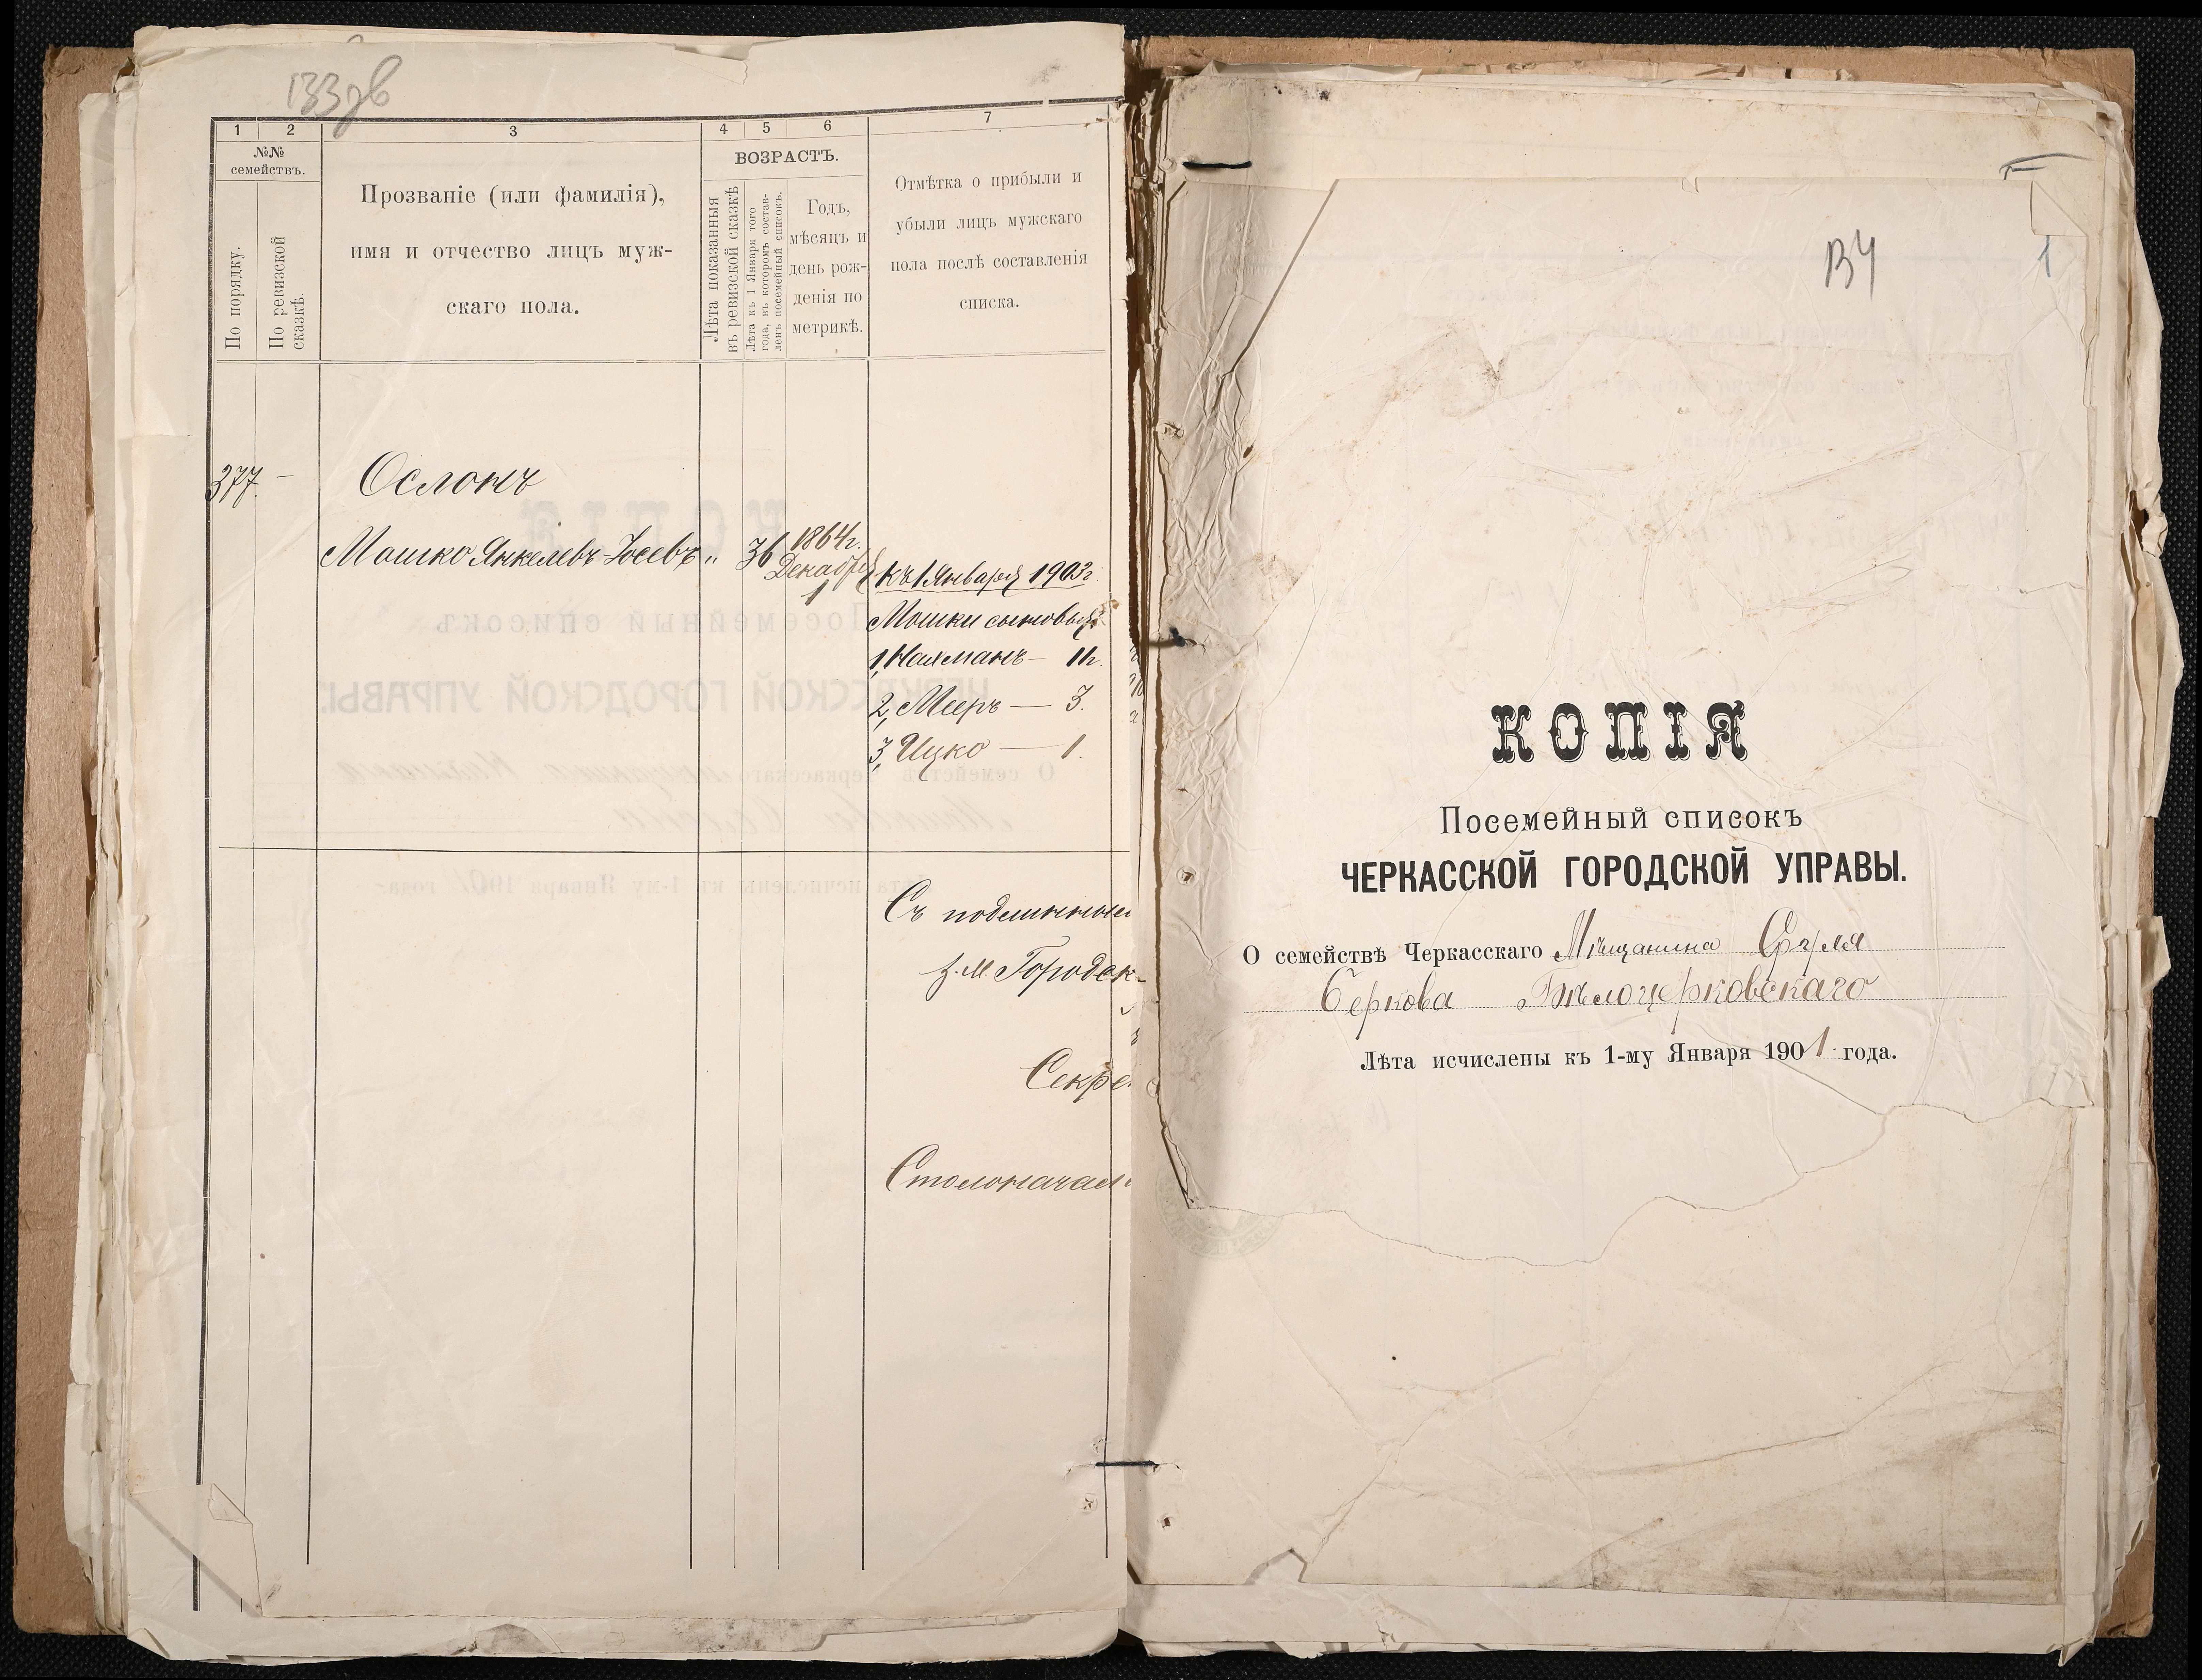 133зв
1 2 3 4 5 6 7
№№ семействъ.
По порядку.
По ревизской сказкѣ.
Прозваніе (или фамилія),
имя и отчество лицъ муж-
скаго пола.
ВОЗРАСТЪ.
Лѣта показанныя
въ ревизской сказкѣ
Лѣта къ 1 Января того
года, въ которомъ состав-
ленъ посемейный списокъ.
Годъ,
мѣсяцъ и
день рож-
денія по
метрикѣ.
Отмѣтка о прибыли и
убыли лицъ мужскаго
пола послѣ составленія
списка.
377. – Ослонъ
Мошко Янкелевъ-Іосевъ „ 36 1864г.
Декабря
1
къ 1 Января 1903г.
Мошки сыновья:
1, Нахманъ — 11л.
2, Мееръ — 3.
3, Ицко — 1.
Съ подлинным
З. М. Городск-
Секре
Столоначаль
134
1
КОПІЯ
Посемейный списокъ
ЧЕРКАССКОЙ ГОРОДСКОЙ УПРАВЫ.
О семействѣ Черкасскаго Мѣщанина Сруля
Беркова Бѣлоцерковскаго
Лѣта исчислены къ 1-му Января 1901 года.